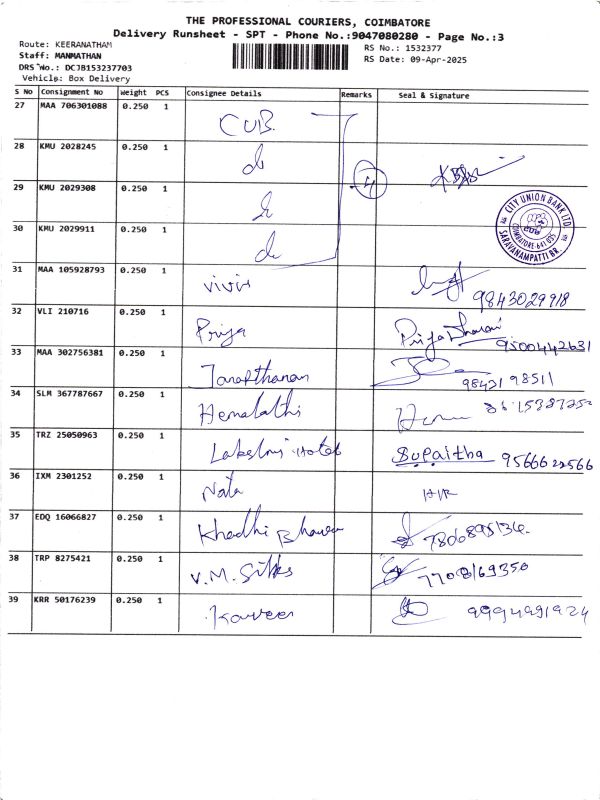 THE PROFESSIONAL COURIERS, COIMBATORE
Delivery Runsheet - SPT - Phone No.:9047080280 - Page No.:3
Route: KEERANATHAM
RS No.: 1532377
Staff: MANMATHAN
RS Date: 09-Apr-2025
DRS No.: DCJB153237703
Vehicle: Box Delivery
S No Consignment No Weight PCS Consignee Details Remarks Seal & Signature
27 MAA 706301088 0.250 1 CUB.
28 KMU 2028245 0.250 1 do
29 KMU 2029308 0.250 1 do 4
CITY UNION BANK LTD.
CUB
COIMBATORE-641 035
SARAVANAMPATTI BR.
30 KMU 2029911 0.250 1 do
31 MAA 105928793 0.250 1 vivin 9843029918
32 VLI 210716 0.250 1 Priya Priya Dharani 9500442631
33 MAA 302756381 0.250 1 Janarthanan 98421 98511
34 SLM 367787667 0.250 1 Hemalathi
35 TRZ 25050963 0.250 1 Lakshmi Hotel Supaitha 9566622566
36 IXM 2301252 0.250 1 Nata H/R
37 EDQ 16066827 0.250 1 Khadhi Bhavan 7806895134.
38 TRP 8275421 0.250 1 V.M. Silks 7708169350
39 KRR 50176239 0.250 1 Kaveer 9994991924